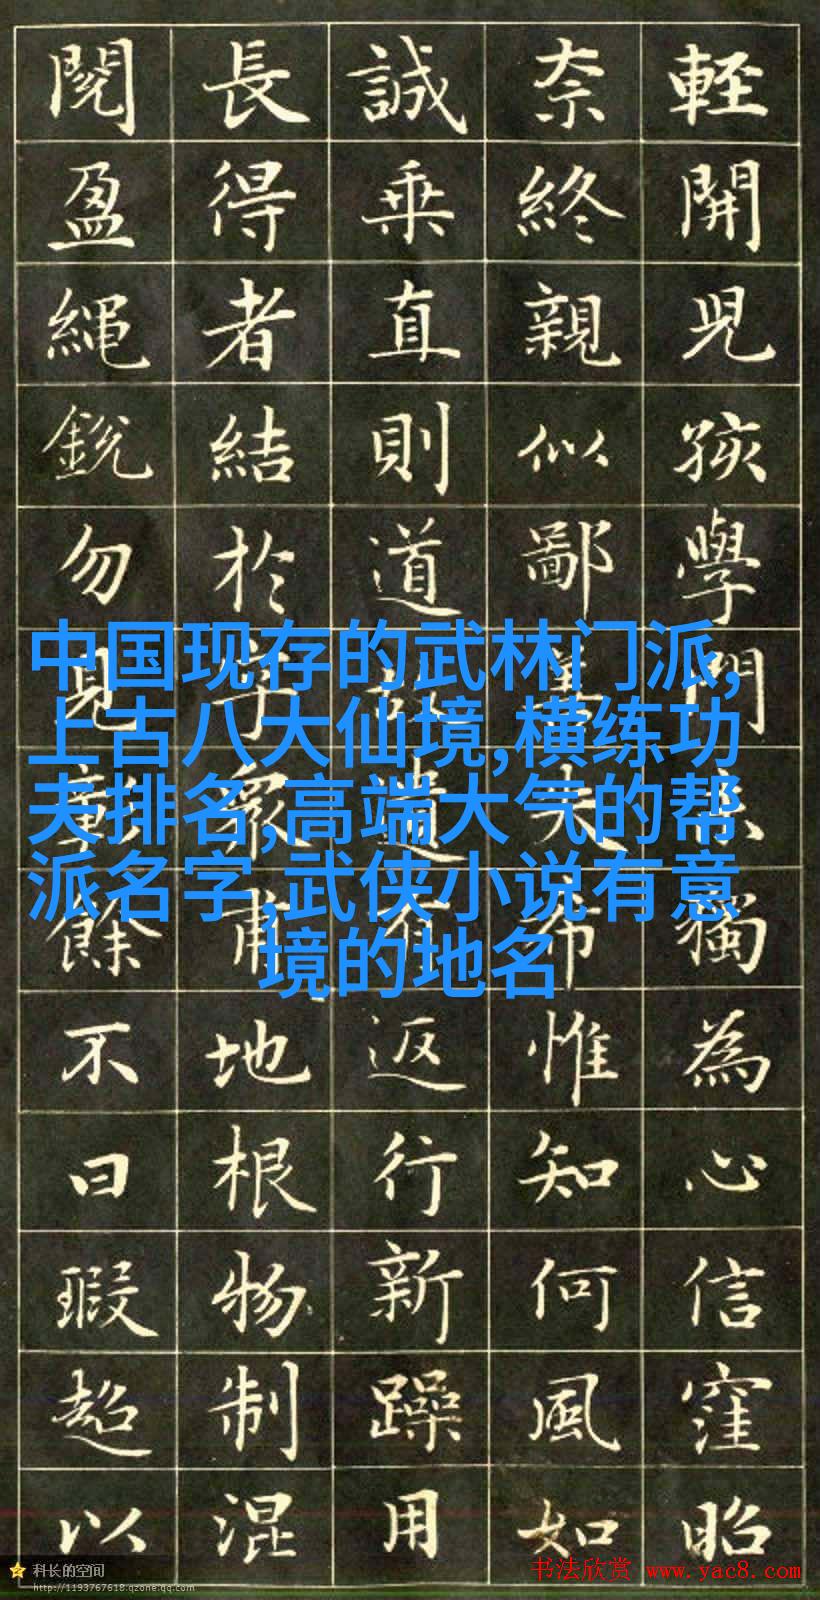 輕開兒孩學門獨為心信窪昭
奈終親似鄙夫希惟知何風如
誠乘直則道返行新躁用
長得者結於眾甫地根物制混
閱盈繩銳勿見彰餘不曰瑕超以
中国现存的武林门派,
上古八大仙境,横练功
夫排名,高端大气的帮
派名字,武侠小说有意
境的地名
科长的空间
http://1193767618.qzone.qq.com
书法欣赏 www.yac8.com